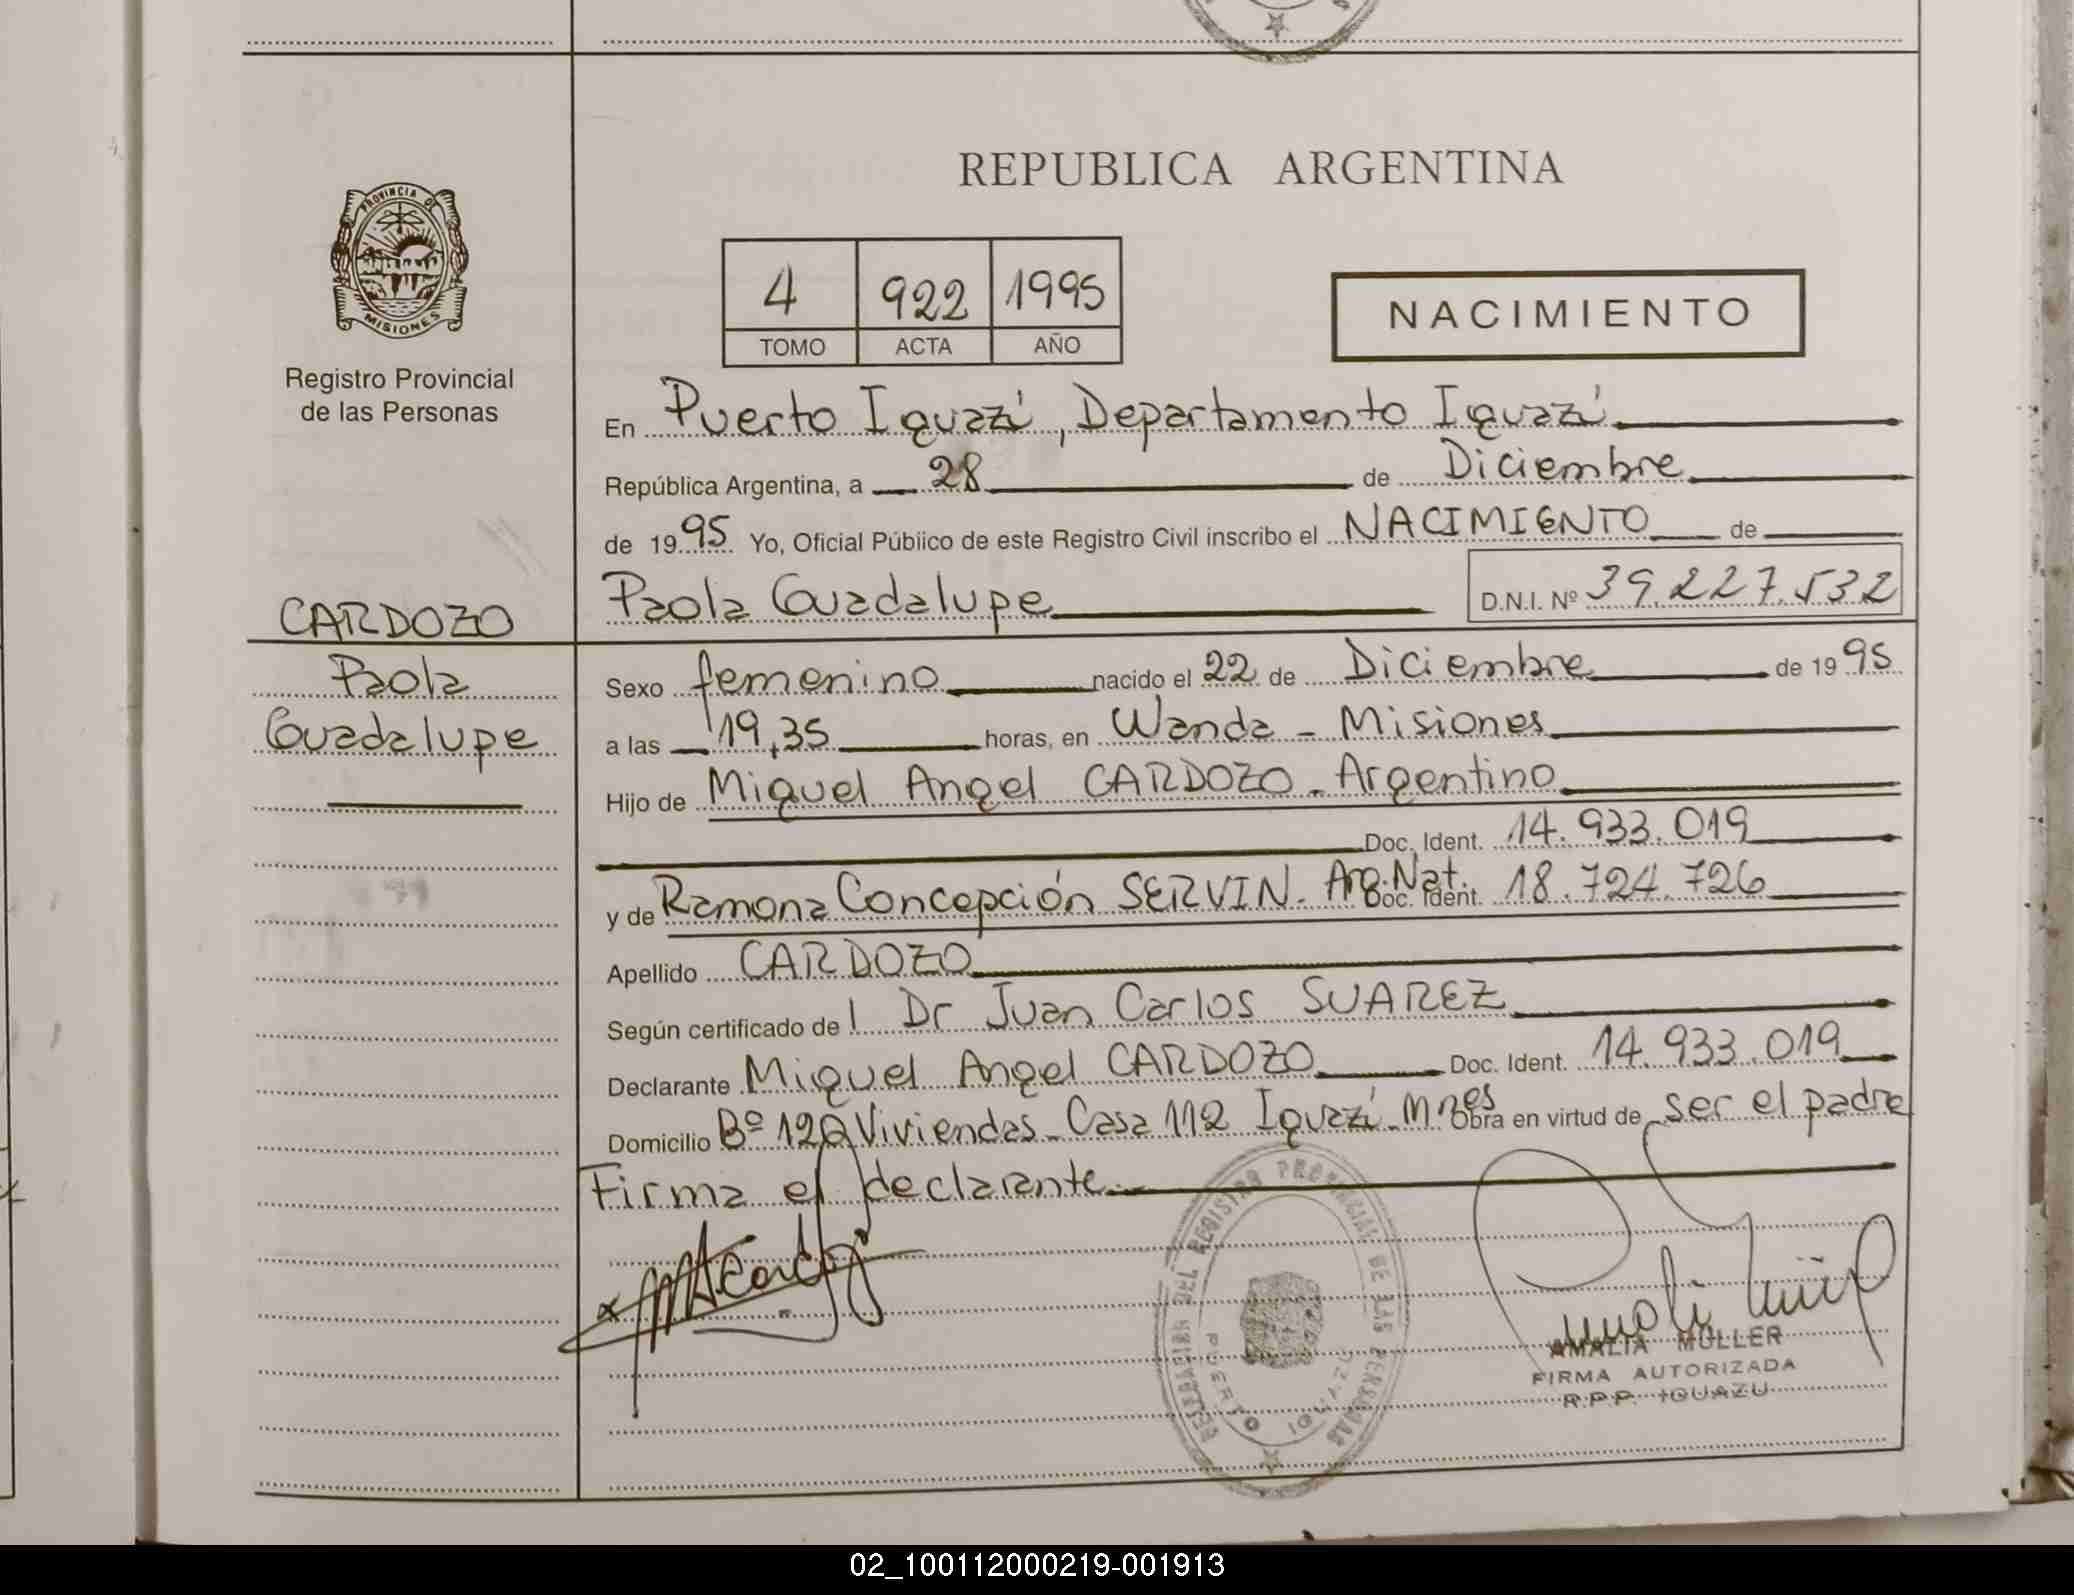 REPUBLICA ARGENTINA
PROVINCIA DE
MISIONES
Registro Provincial
de las Personas
4 922 1995
TOMO ACTA AÑO
NACIMIENTO
En Puerto Iguazú, Departamento Iguazú
República Argentina, a 28 de Diciembre
de 1995 Yo, Oficial Público de este Registro Civil inscribo el NACIMIENTO de
CARDOZO
Paola Guadalupe D.N.I. Nº 39.227.532
Paola
Guadalupe
Sexo femenino nacido el 22 de Diciembre de 1995
a las 19,35 horas, en Wanda - Misiones
Hijo de Miguel Angel CARDOZO - Argentino
Doc. Ident. 14.933.019
y de Ramona Concepción SERVIN. Arg. Nat. Doc. Ident. 18.724.726
Apellido CARDOZO
Según certificado de l Dr Juan Carlos SUAREZ
Declarante Miguel Angel CARDOZO Doc. Ident. 14.933.019
Domicilio Bº 120 Viviendas - Casa 112 Iguazú - Mnes Obra en virtud de ser el padre
Firma el declarante
DELEGACION DEL REGISTRO PROVINCIAL DE LAS PERSONAS
PUERTO IGUAZU
AMALIA MULLER
FIRMA AUTORIZADA
R.P.P. IGUAZU
02_100112000219-001913